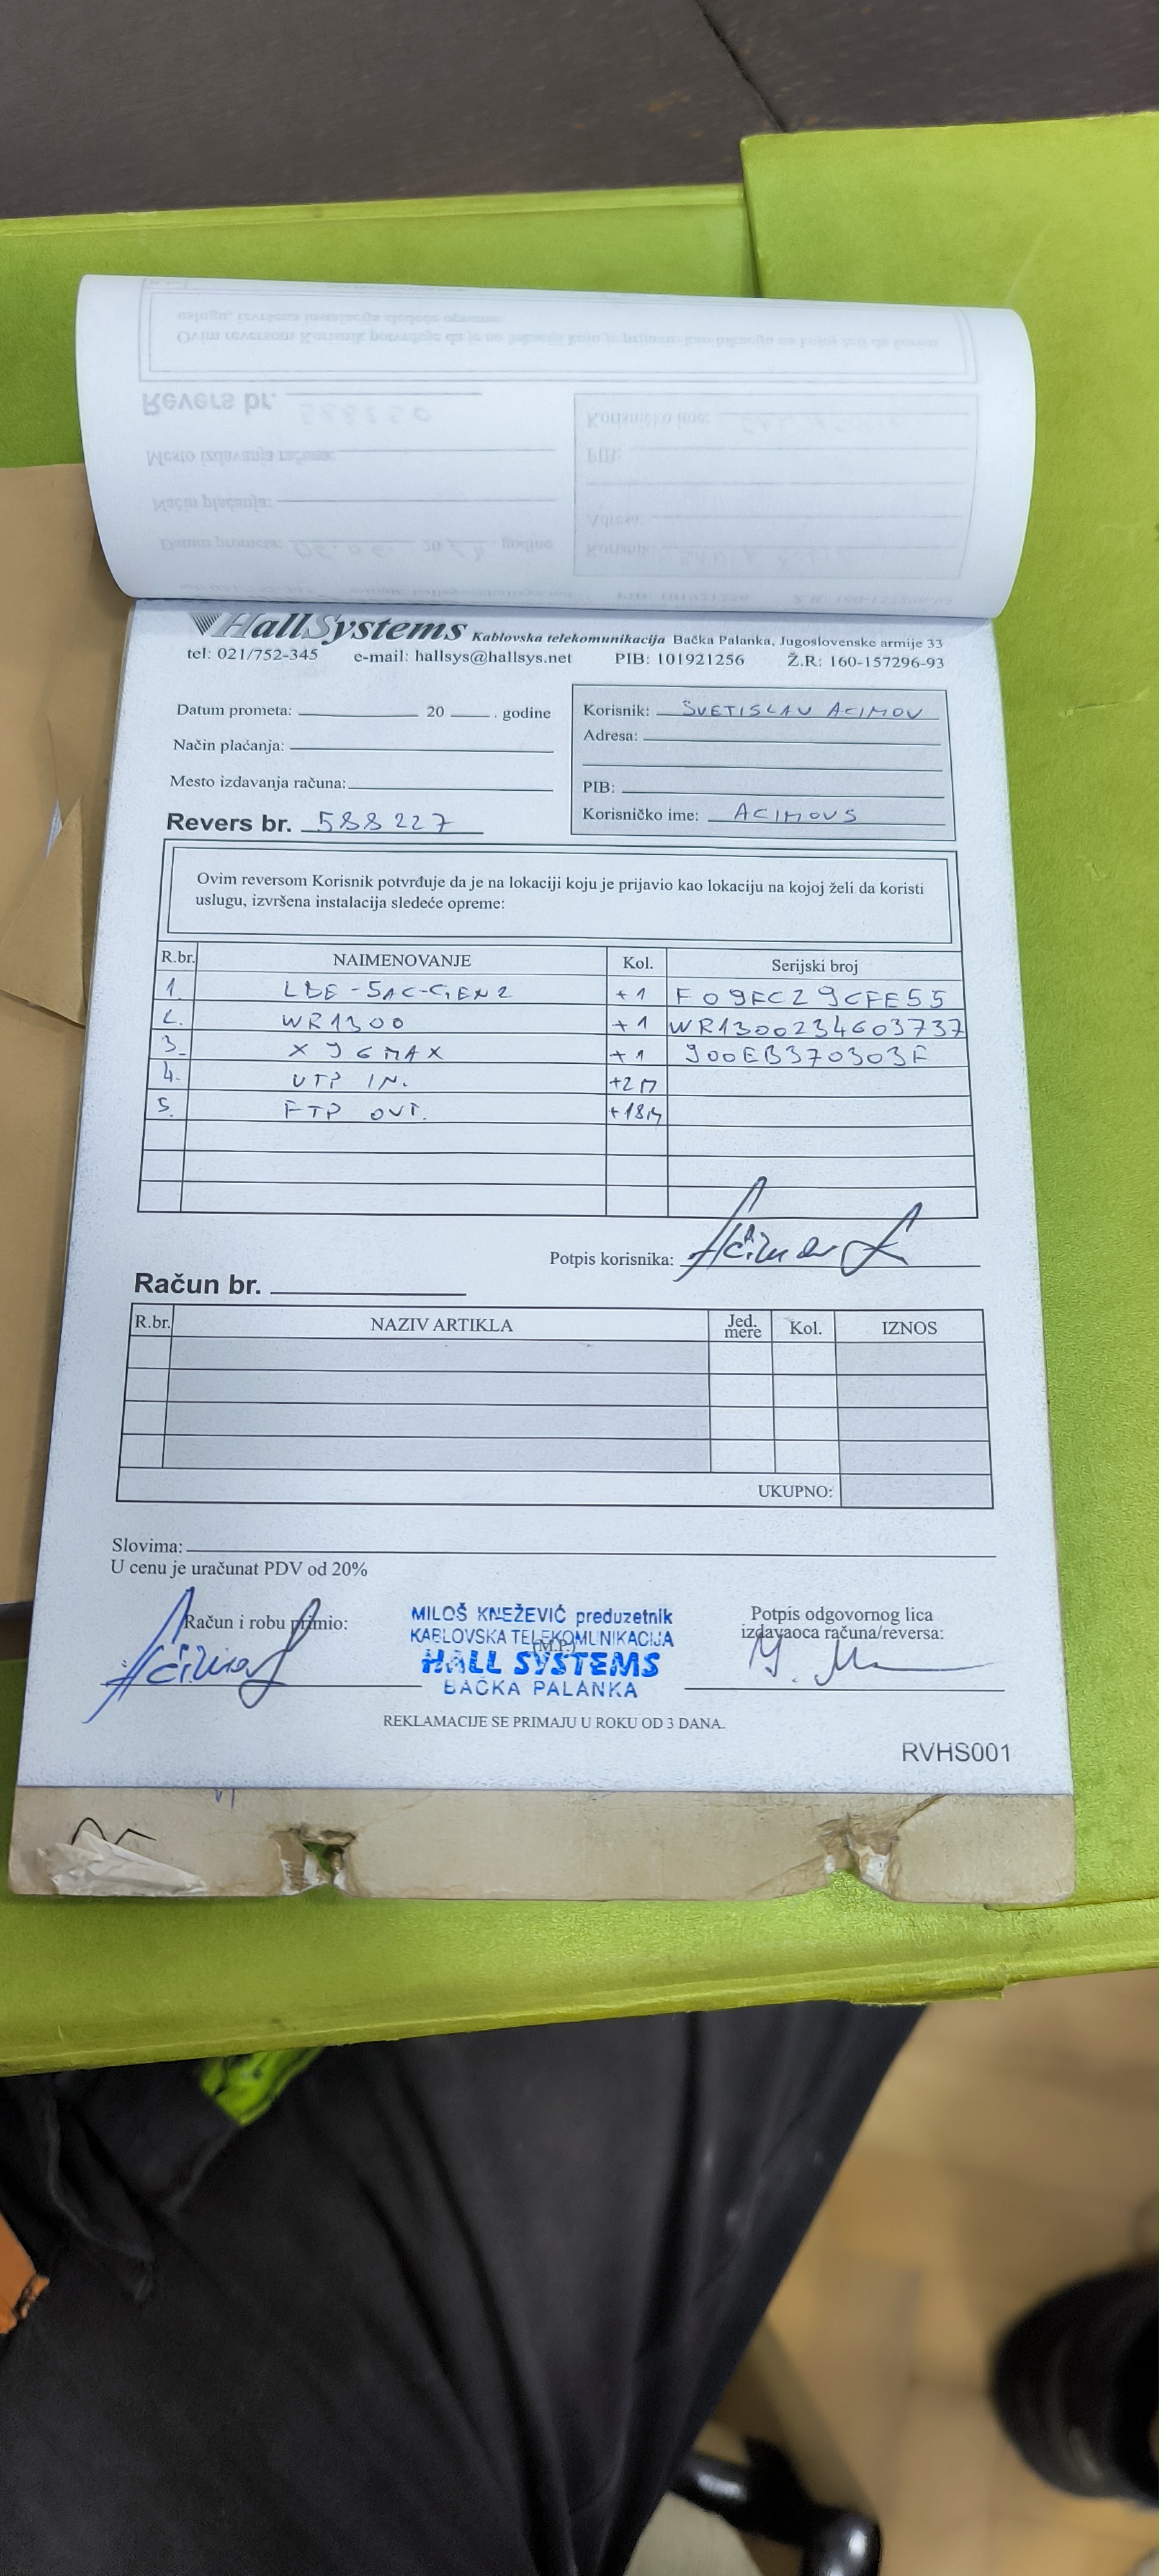 HallSystems Kablovska telekomunikacija Bačka Palanka, Jugoslovenske armije 33
tel: 021/752-345 e-mail: hallsys@hallsys.net PIB: 101921256 Ž.R: 160-157296-93
Datum prometa: 20 . godine
Način plaćanja:
Mesto izdavanja računa:
Revers br. 588227
Korisnik: SVETISLAV ACIMOV
Adresa:
PIB:
Korisničko ime: ACIMOVS
Ovim reversom Korisnik potvrđuje da je na lokaciji koju je prijavio kao lokaciju na kojoj želi da koristi
uslugu, izvršena instalacija sledeće opreme:
R.br. NAIMENOVANJE Kol. Serijski broj
1. LBE-5AC-GEN2 +1 F09FC29CFE55
2. WR1300 +1 WR1300234603737
3. X96MAX +1 900EB370303F
4. UTP IN. +2M
5. FTP OUT. +18M
Potpis korisnika:
Račun br.
R.br. NAZIV ARTIKLA Jed. mere Kol. IZNOS
UKUPNO:
Slovima:
U cenu je uračunat PDV od 20%
Račun i robu primio:
MILOŠ KNEŽEVIĆ preduzetnik
KABLOVSKA TELEKOMUNIKACIJA
(M.P.)
HALL SYSTEMS
BAČKA PALANKA
Potpis odgovornog lica
izdavaoca računa/reversa:
REKLAMACIJE SE PRIMAJU U ROKU OD 3 DANA.
RVHS001